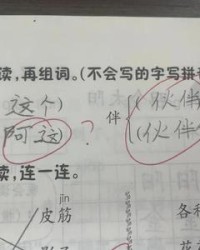 读,再组词。(不会写的字写拼
这个) 伴 (伙伴
阿这) ? (伙伴
读,连一连。
jīn
皮筋 各种